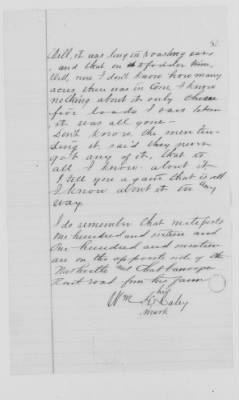 Well, it was long in roasting ears
and that on
Well, now I don't know how many
acres there was in Corn I know
nothing about it only these
five loads I was
it was all gone—
Don't know, the men ten-
ding it said they never
got any of it, that is
all I know about it
I tell you again that is all
I know about it in any
way.
I do remember that mile posts
one hundred and sixteen and
one hundred and nineteen
are on the opposite side of the
Nashville and Chattanooga
Rail road from his farm
his
Wm Haley
mark